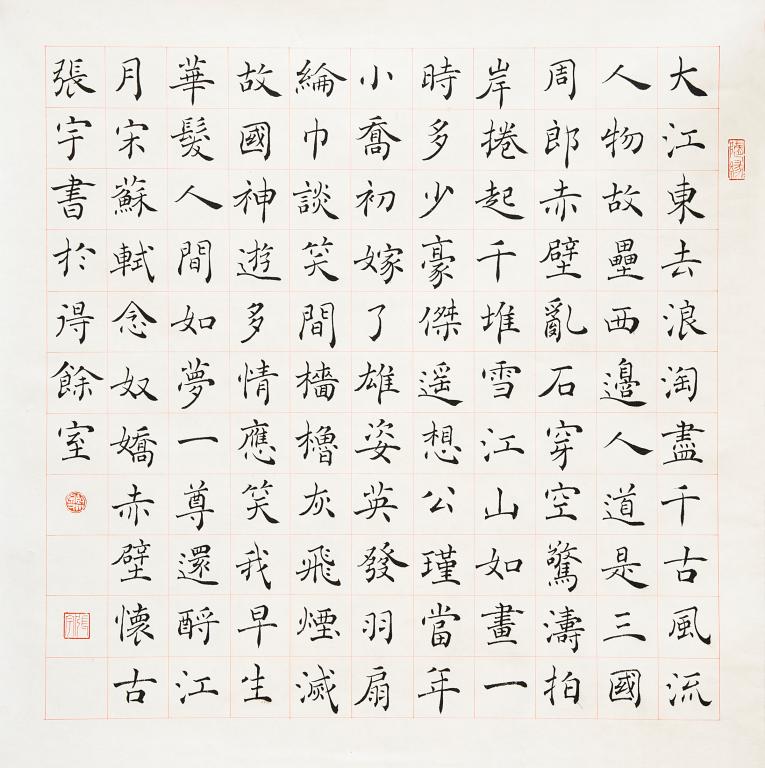 大江東去浪淘盡千古風流
人物故壘西邊人道是三國
周郎赤壁亂石穿空驚濤拍
岸捲起千堆雪江山如畫一
時多少豪傑遥想公瑾當年
小喬初嫁了雄姿英發羽扇
綸巾談笑間檣櫓灰飛煙滅
故國神遊多情應笑我早生
華髮人間如夢一尊還酹江
月宋蘇軾念奴嬌赤壁懷古
張宇書於得餘室